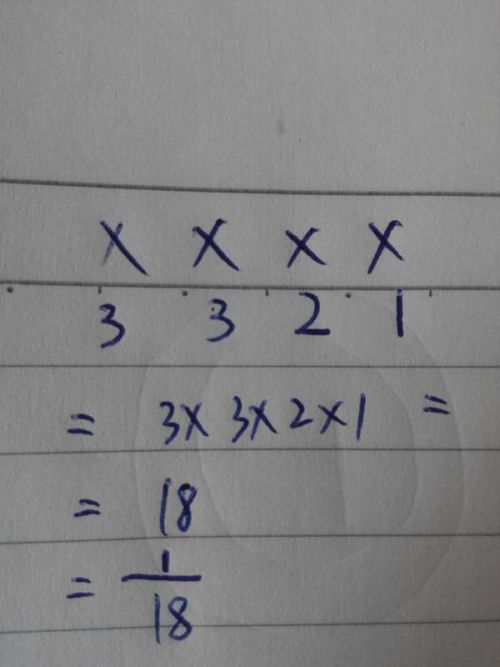 X X X X
3 3 2 1
= 3 x 3 x 2 x 1 =
= 18
= 1/18